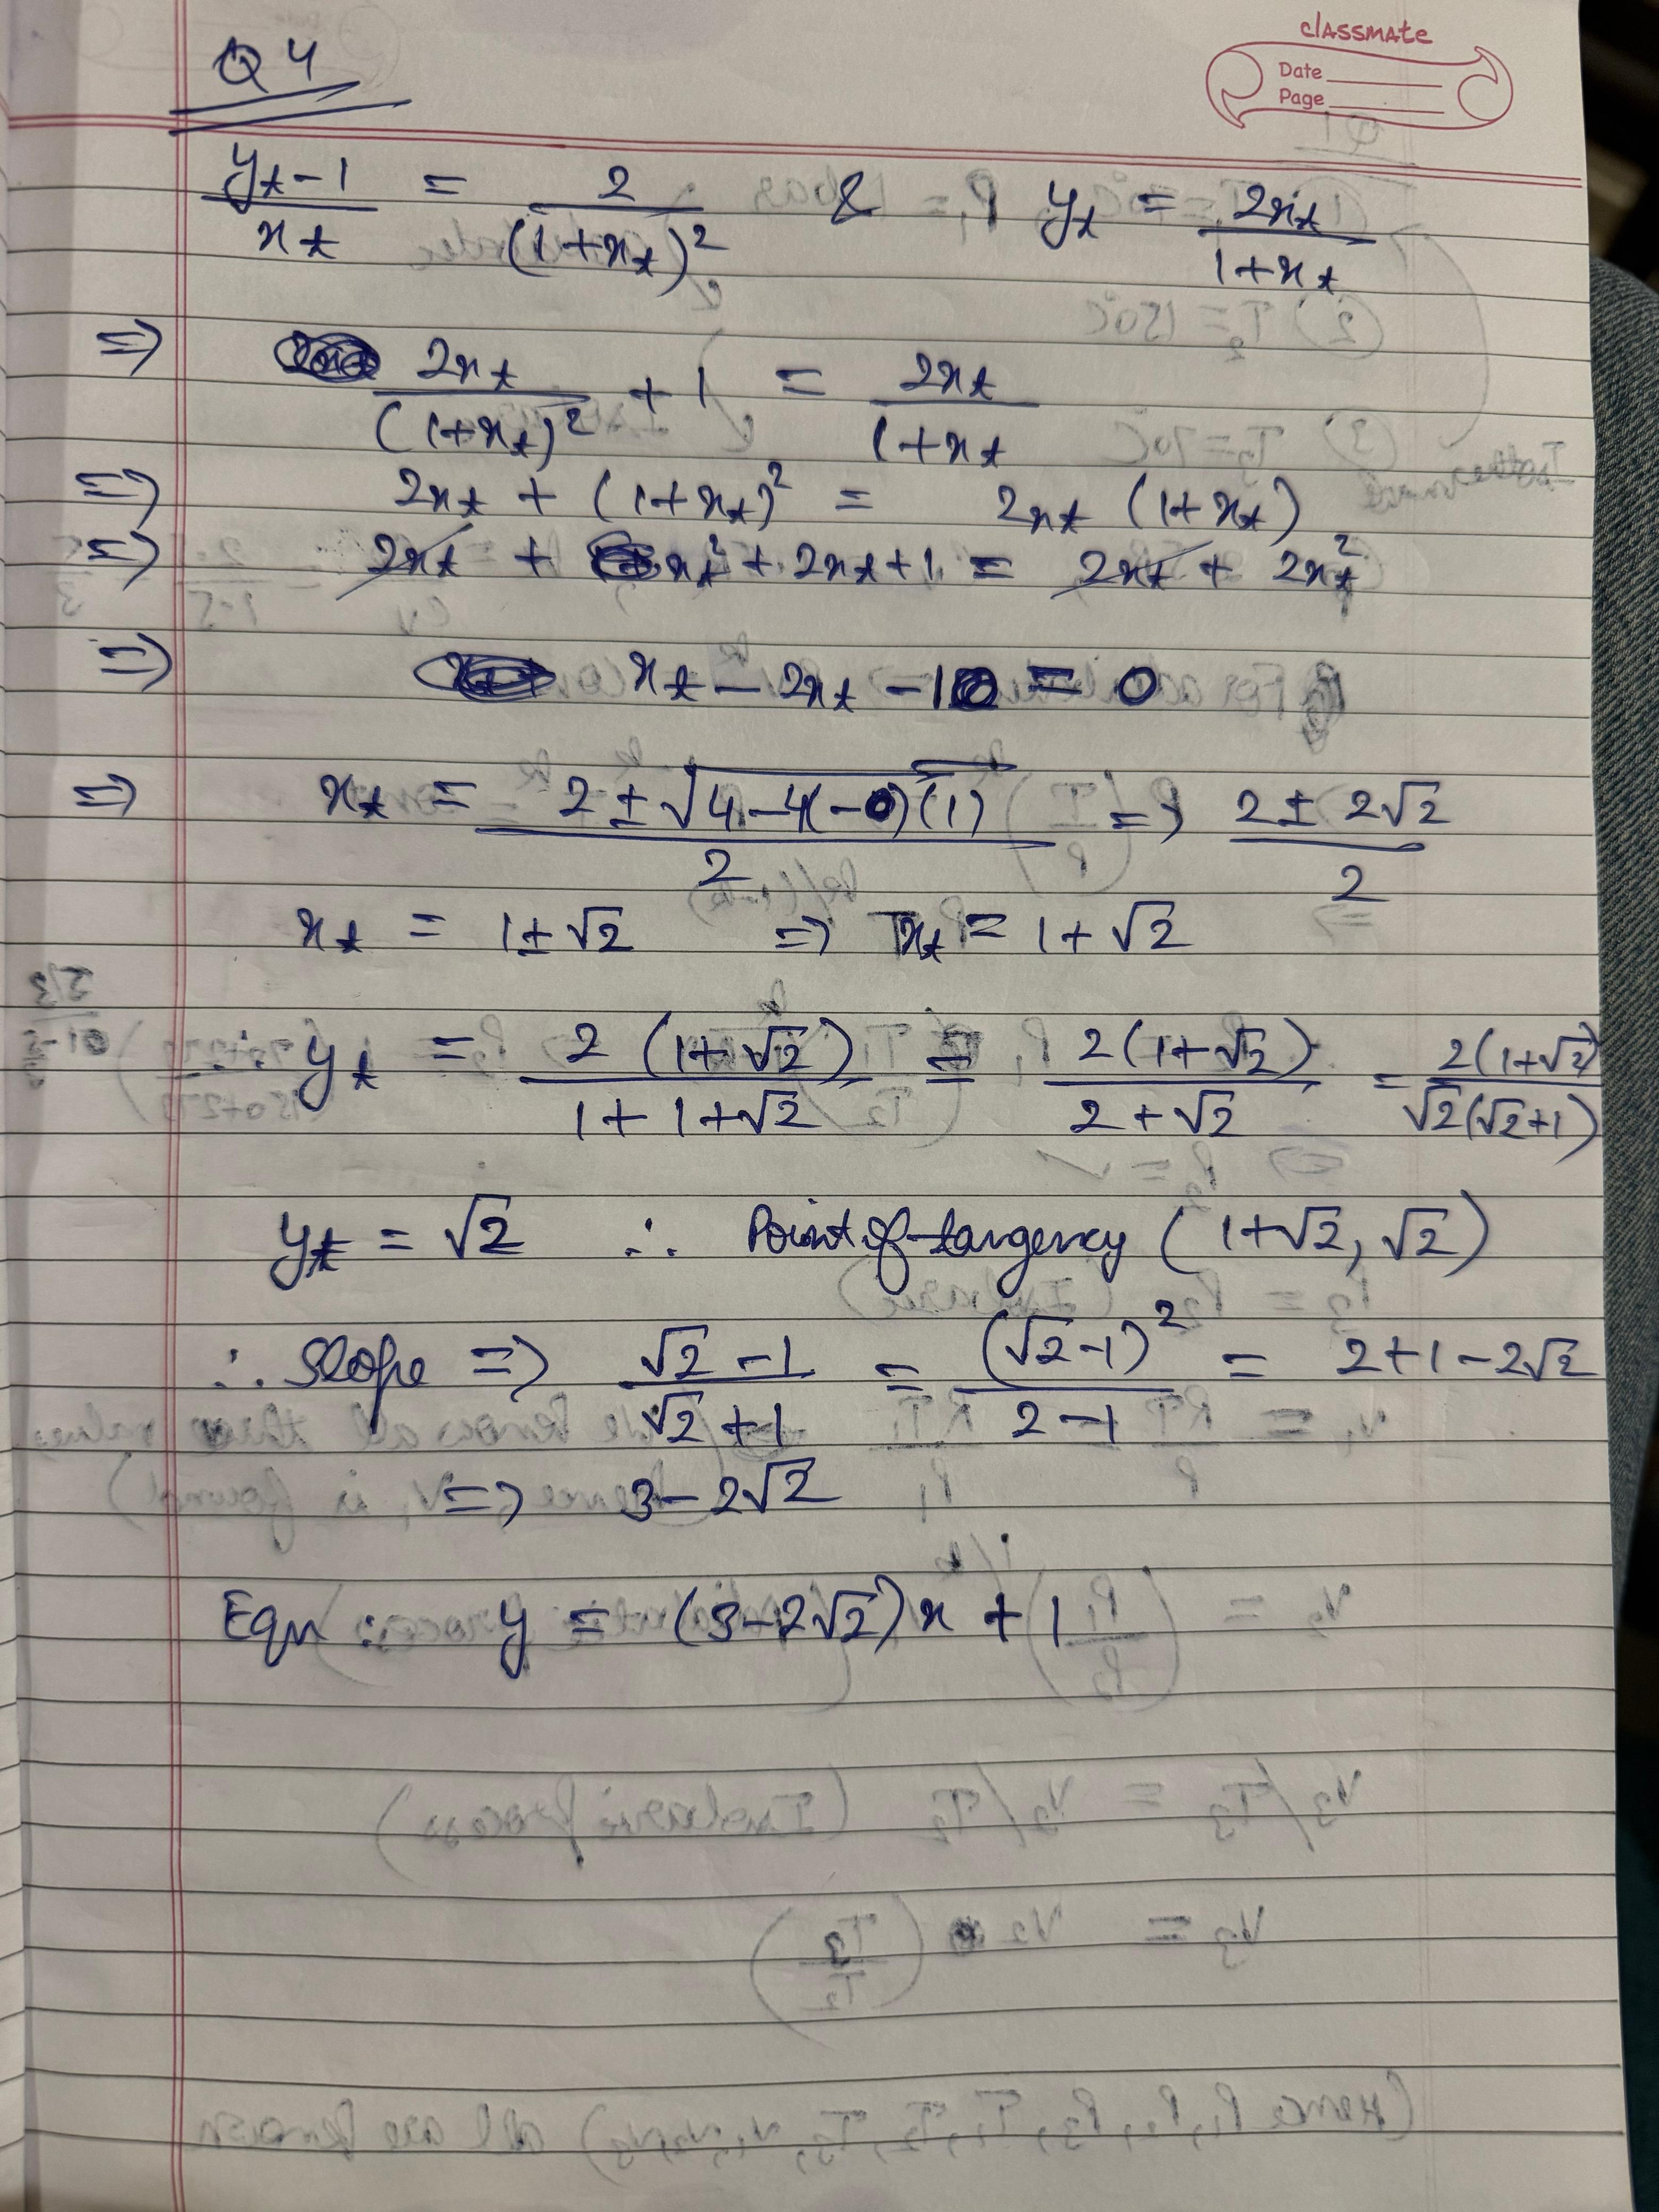 classmate
Date
Page
Q4
(y_t - 1)/x_t = 2/(1+x_t)^2 & y_t = 2x_t/(1+x_t)
⇒ 2x_t/(1+x_t)^2 + 1 = 2x_t/(1+x_t)
⇒ 2x_t + (1+x_t)^2 = 2x_t (1+x_t)
⇒ 2x_t + x_t^2 + 2x_t + 1 = 2x_t + 2x_t^2
⇒ x_t - 2x_t - 1 = 0
⇒ x_t = (2 ± √(4-4(-0)(1)))/2 => (2 ± 2√2)/2
x_t = 1±√2 => x_t = 1+√2
∴ y_t = 2(1+√2)/(1+1+√2) = 2(1+√2)/(2+√2) = 2(1+√2)/(√2(√2+1))
y_t = √2 ∴ Point of tangency (1+√2, √2)
∴ Slope => (√2-1)/(√2+1) = (√2-1)^2/(2-1) = 2+1-2√2
=> 3-2√2
Eqn : y = (3-2√2)x + 1